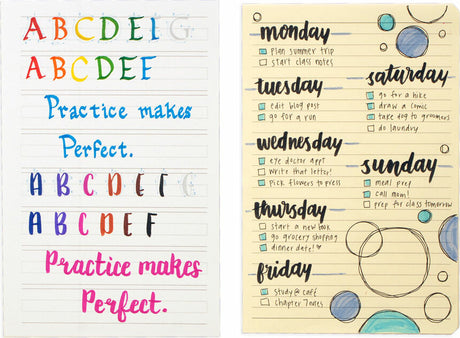 ABCDEIG
ABCDEF
Practice makes
Perfect.
ABCDEFG
ABCDEF
Practice makes
Perfect.
monday
plan summer trip
start class notes
tuesday
edit blog post
go for a run
wednesday
eye doctor appt
write that letter!
pick flowers to press
thursday
start a new book
go grocery shopping
dinner date! ♥
friday
study @ café
chapter
saturday
go for a hike
draw a comic
take dog to groomers
do laundry
sunday
meal prep
call mom!
prep for class tomorrow